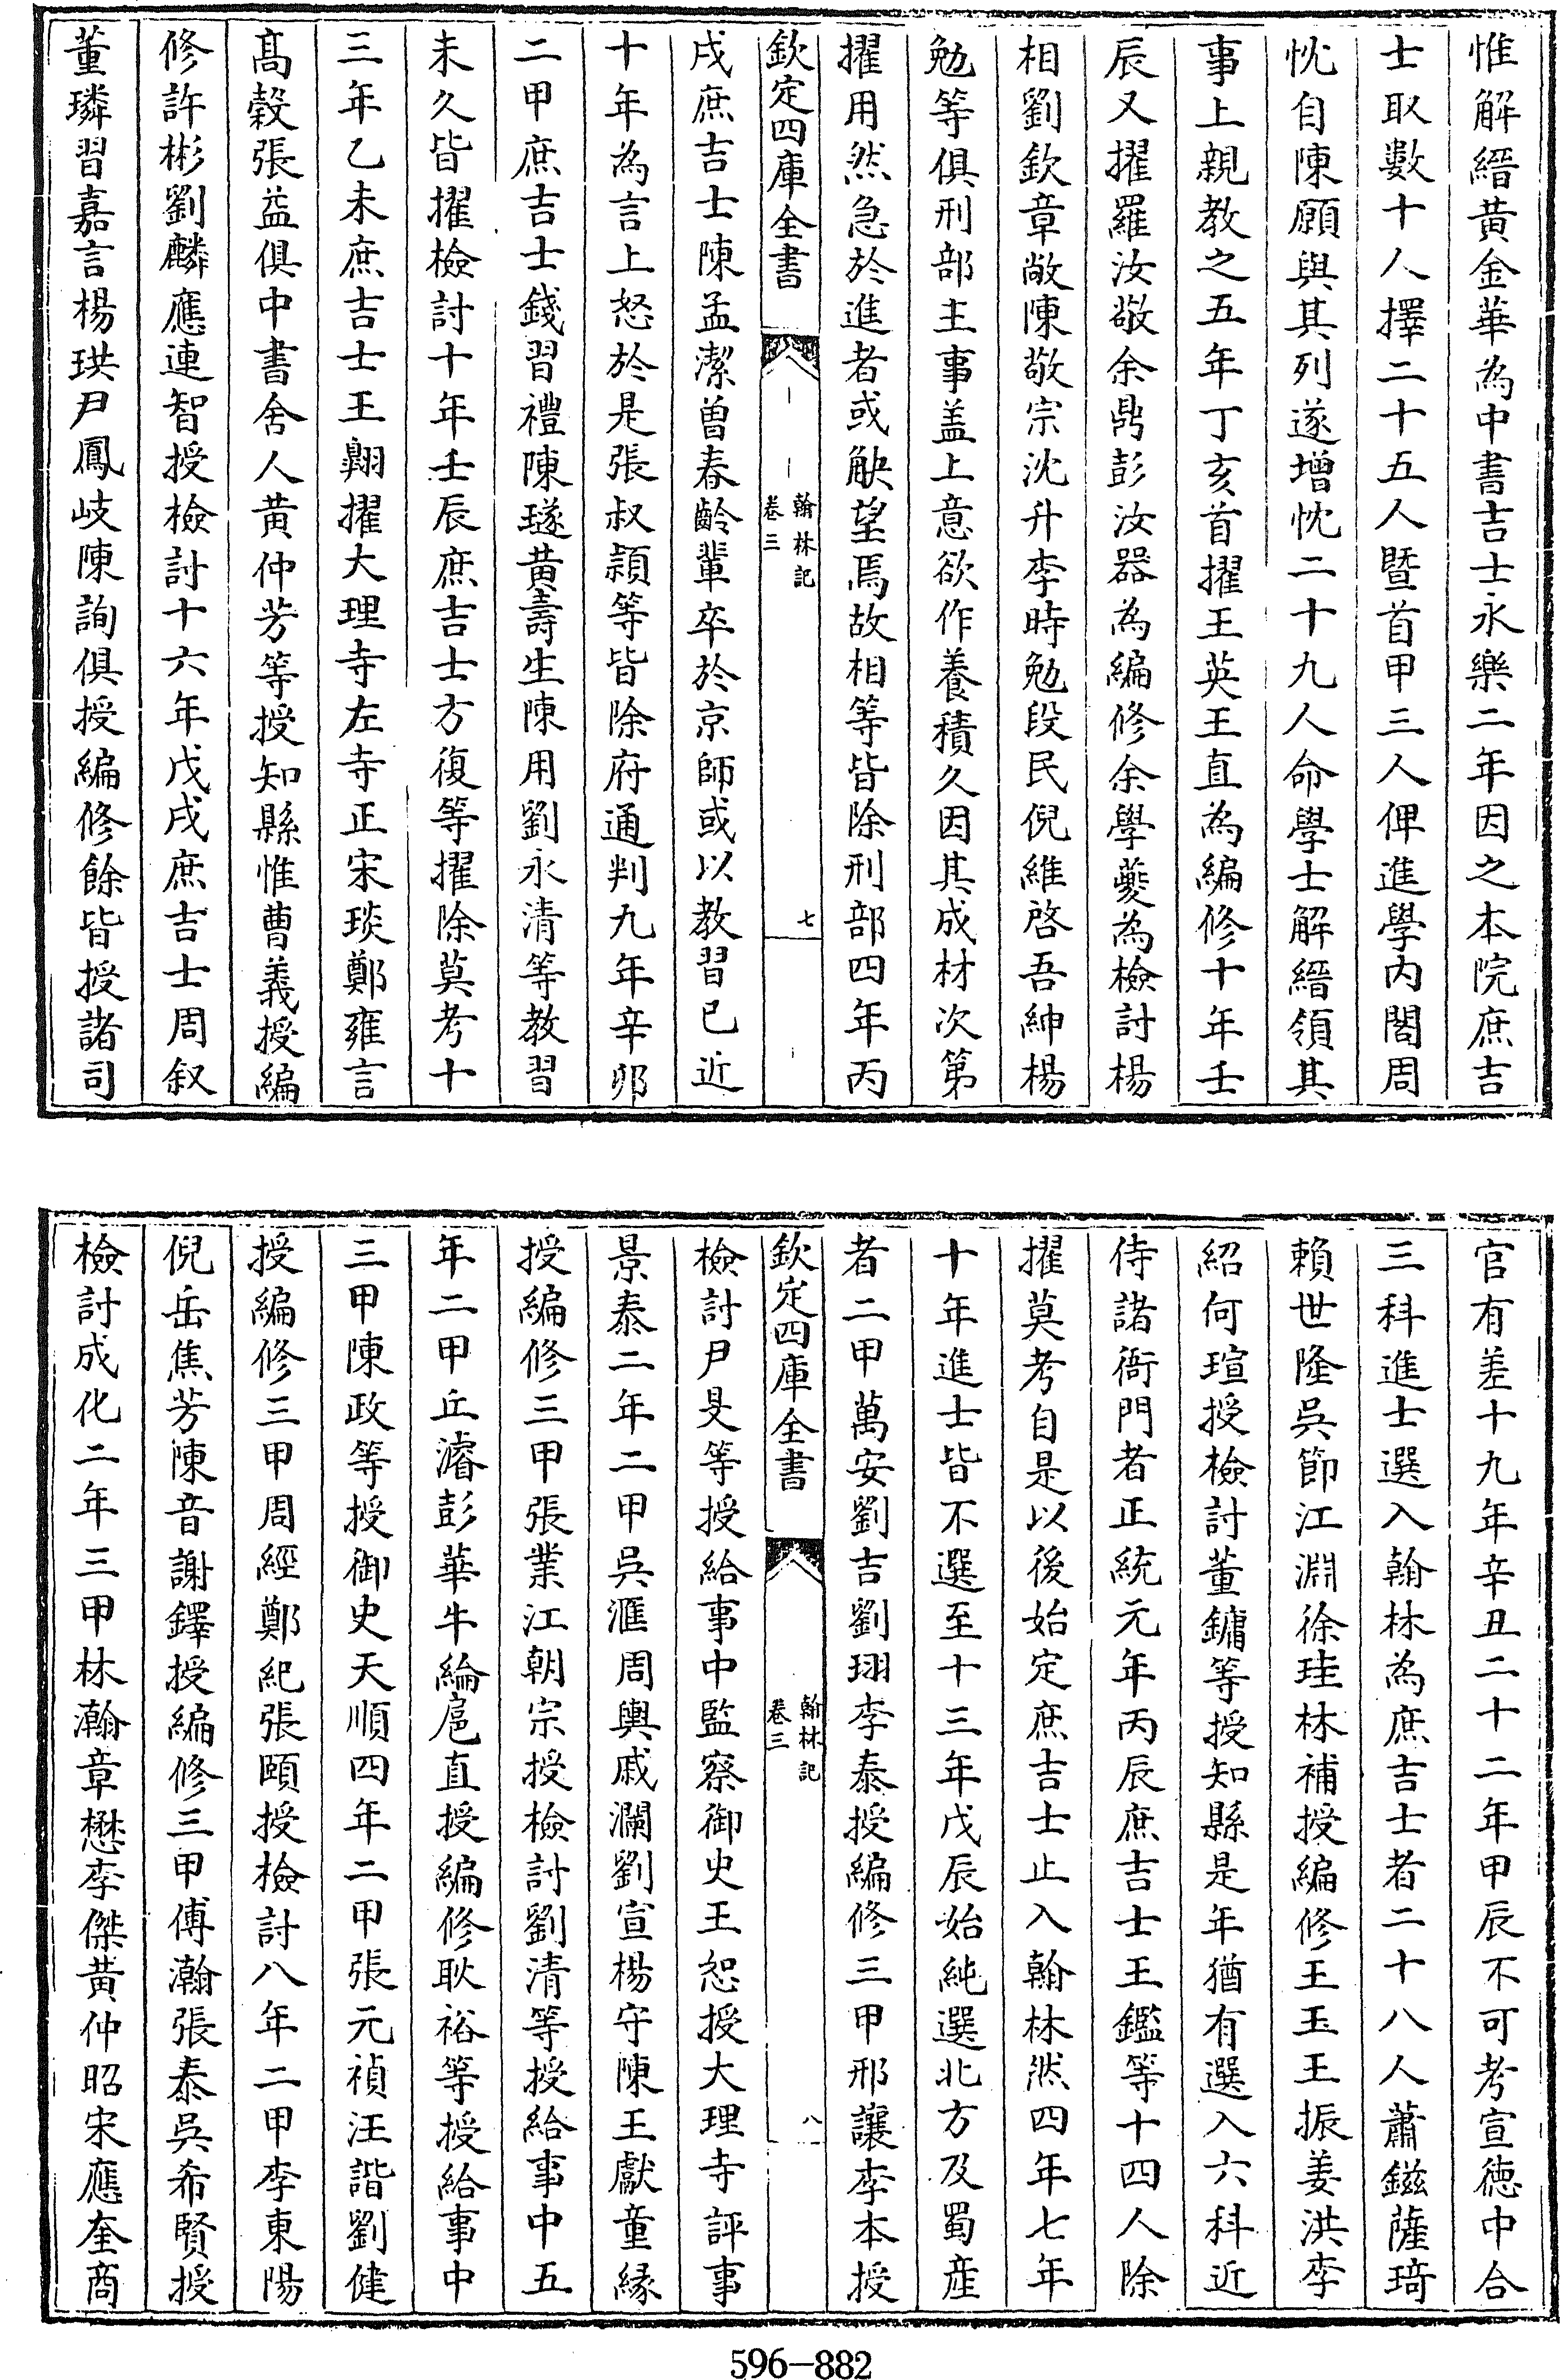 惟解縉黃金華為中書吉士永樂二年因之本院庶吉
士取數十人擇二十五人暨首甲三人俾進學內閣周
忱自陳願與其列遂增忱二十九人命學士解縉領其
事上親教之五年丁亥首擢王英王直為編修十年壬
辰又擢羅汝敬余鼎彭汝器為編修余學夔為檢討楊
相劉欽章敞陳敬宗沈升李時勉段民倪維啓吾紳楊
勉等俱刑部主事盖上意欲作養積久因其成材次第
擢用然急於進者或觖望焉故相等皆除刑部四年丙
欽定四庫全書
翰林記
卷三
七
戌庶吉士陳孟潔曾春齡輩卒於京師或以教習已近
十年為言上怒於是張叔頴等皆除府通判九年辛卯
二甲庶吉士錢習禮陳璲黄壽生陳用劉永清等教習
未久皆擢檢討十年壬辰庶吉士方復等擢除莫考十
三年乙未庶吉士王翺擢大理寺左寺正宋琰鄭雍言
髙穀張益俱中書舍人黄仲芳等授知縣惟曹義授編
修許彬劉麟應連智授檢討十六年戊戌庶吉士周叙
董璘習嘉言楊珙尹鳳岐陳詢俱授編修餘皆授諸司
官有差十九年辛丑二十二年甲辰不可考宣徳中合
三科進士選入翰林為庶吉士者二十八人蕭鎡薩琦
賴世隆吳節江淵徐珪林補授編修王玉王振姜洪李
紹何瑄授檢討董鏞等授知縣是年猶有選入六科近
侍諸衙門者正統元年丙辰庶吉士王鑑等十四人除
擢莫考自是以後始定庶吉士止入翰林然四年七年
十年進士皆不選至十三年戊辰始純選北方及蜀産
者二甲萬安劉吉劉珝李泰授編修三甲邢讓李本授
欽定四庫全書
翰林記
卷三
八
檢討尹旻等授給事中監察御史王恕授大理寺評事
景泰二年二甲吳滙周輿戚瀾劉宣楊守陳王獻童緣
授編修三甲張業江朝宗授檢討劉清等授給事中五
年二甲丘濬彭華牛綸扈直授編修耿裕等授給事中
三甲陳政等授御史天順四年二甲張元禎汪諧劉健
授編修三甲周經鄭紀張頤授檢討八年二甲李東陽
倪岳焦芳陳音謝鐸授編修三甲傅瀚張泰吳希賢授
檢討成化二年三甲林瀚章懋李傑黄仲昭宋應奎商
596-882